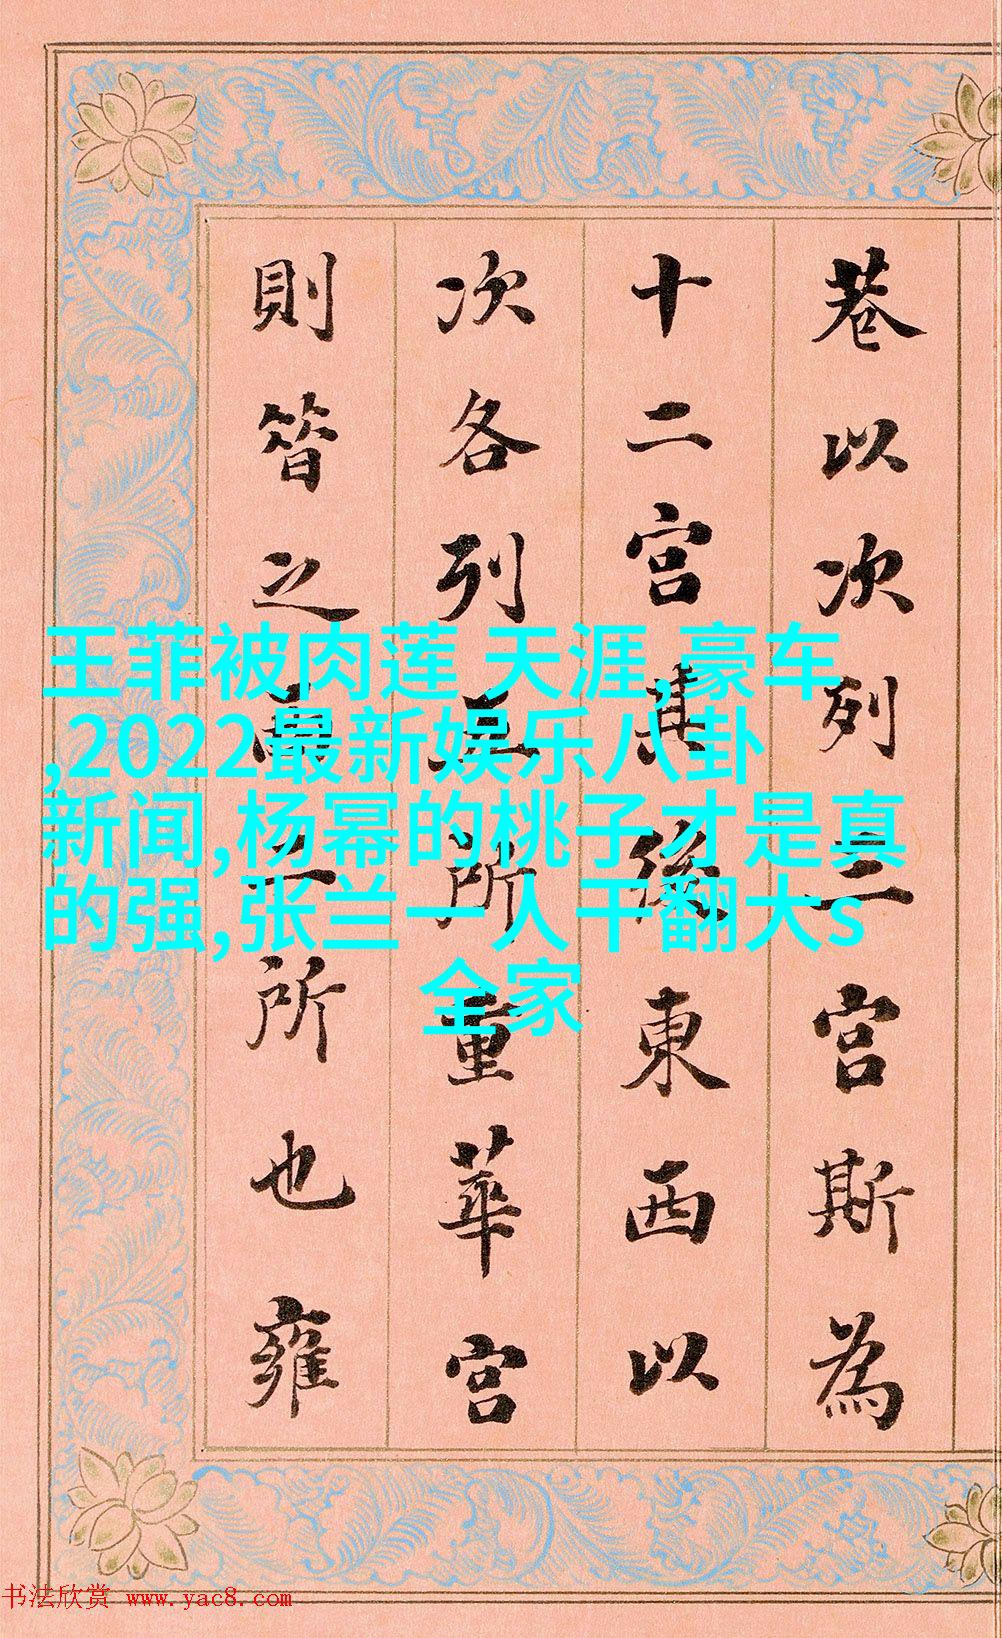 巷以次列三宫斯為
十二宫其後東西以
次各列五所重華宫
則昔之西二所也雍
王菲被肉莲 天涯,豪车
,2022最新娱乐八卦
新闻,杨幂的桃子才是真
的强,张兰一人干翻大s
全家
书法欣赏 www.yac8.com